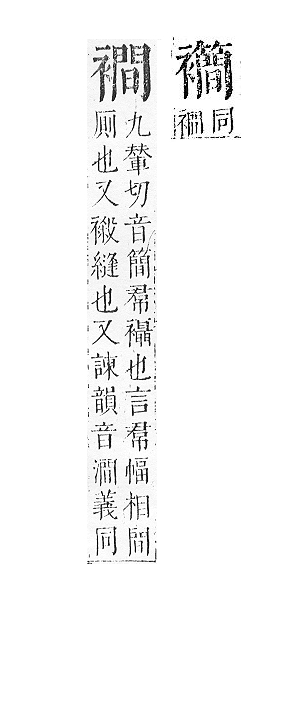 同襇
襇
九輦切音簡帬襵也言帬幅相間
厠也又縫也又諫韻音澗義同